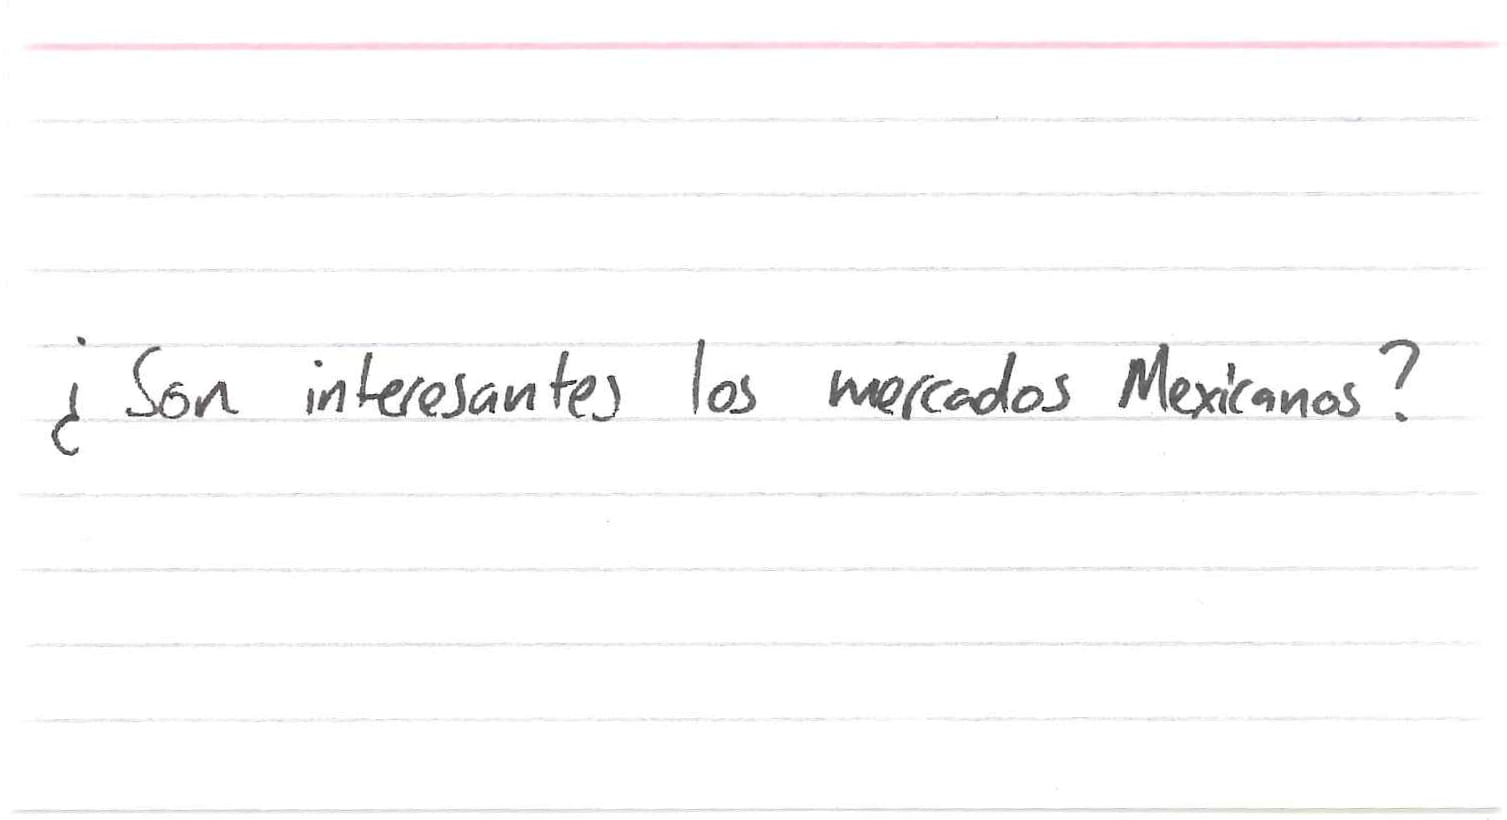 ¿Son interesantes los mercados Mexicanos?